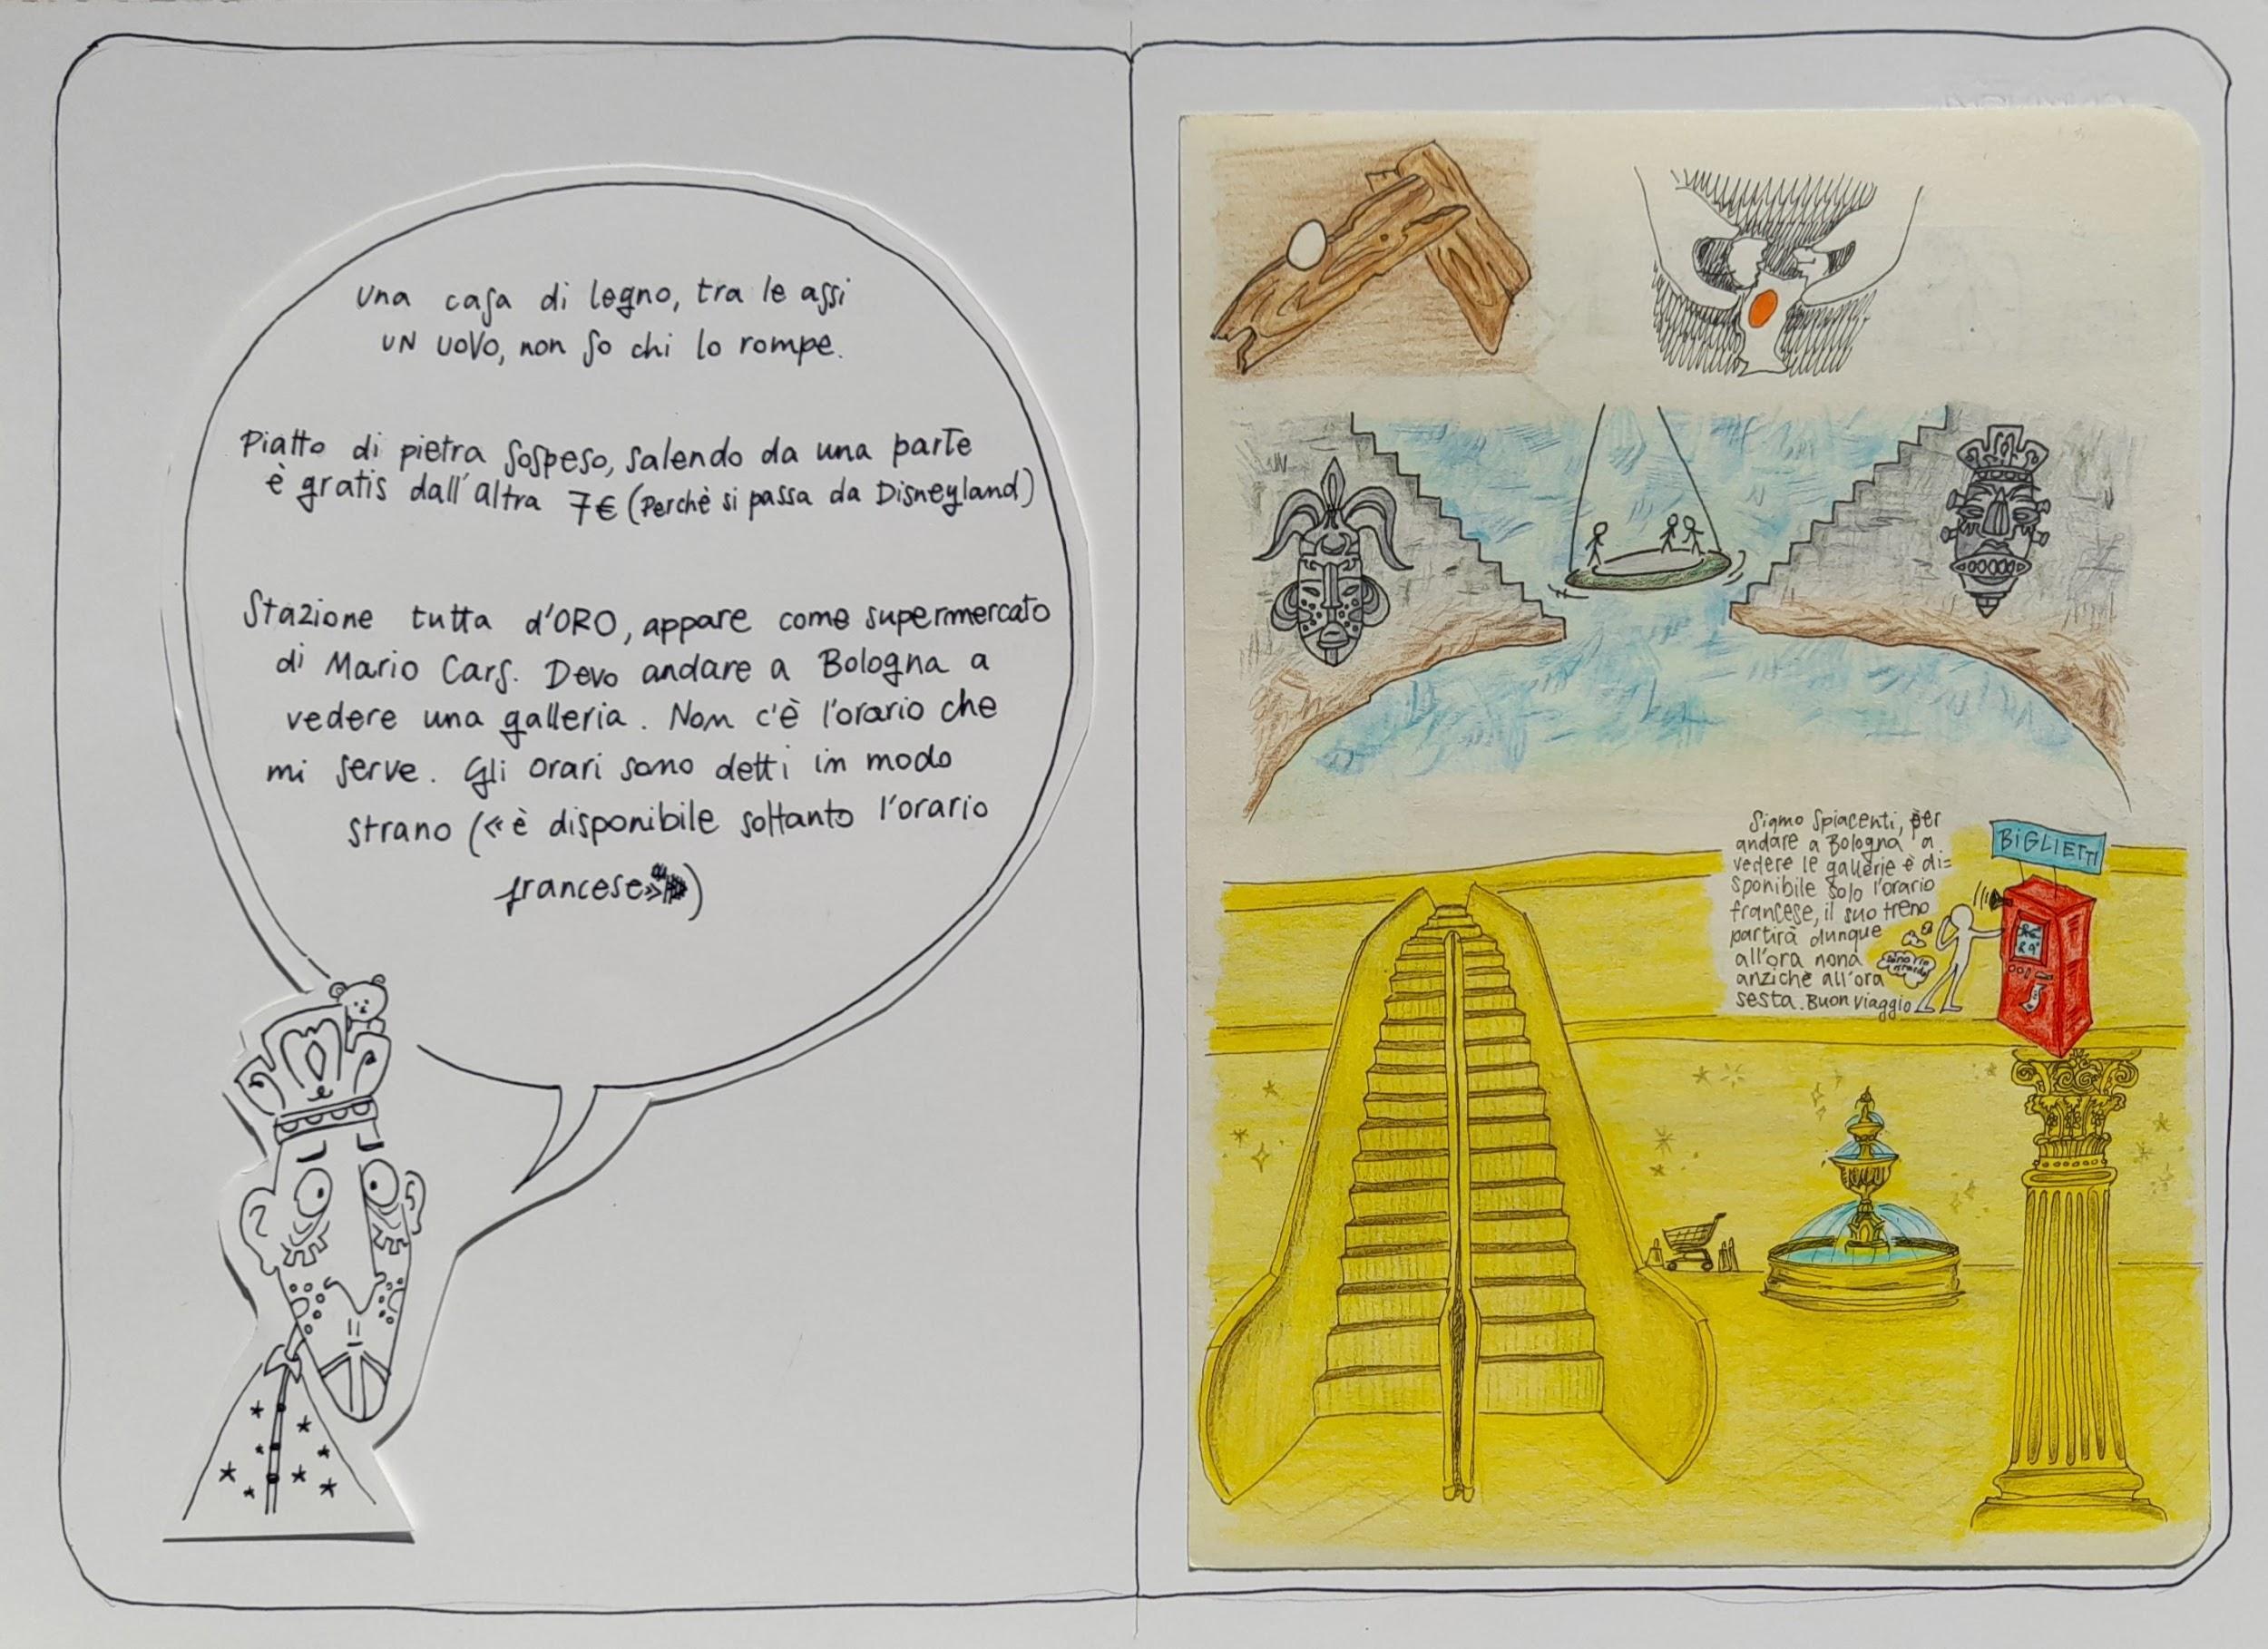 una casa di legno, tra le assi
UN UOVO, non so chi lo rompe.
Piatto di pietra sospeso, salendo da una parte
è gratis dall'altra 7€ (Perchè si passa da Disneyland)
Stazione tutta d'ORO, appare come supermercato
di Mario Cars. Devo andare a Bologna a
vedere una galleria. Non c'è l'orario che
mi serve. Gli orari sono detti in modo
strano («è disponibile soltanto l'orario
francese»)
Siamo spiacenti, per
andare a Bologna a
vedere le gallerie è di=
sponibile solo l'orario
francese, il suo treno
partirà dunque
all'ora nona
anzichè all'ora
sesta. Buon viaggio
BIGLIETTI